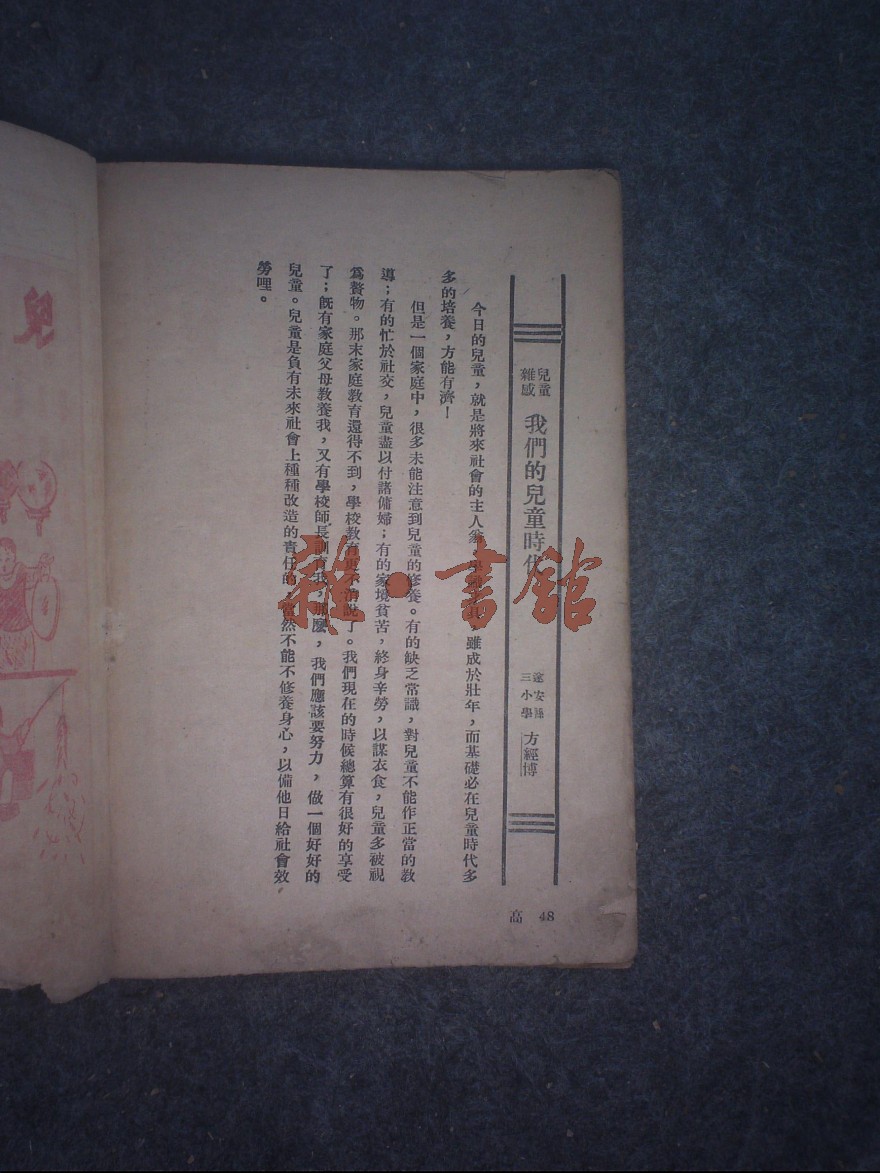 兒童
雜感
我們的兒童時代
遠安縣
三小學
方經博
今日的兒童，就是將來社會的主人翁，學雖成於壯年，而基礎必在兒童時代多
多的培養，方能有濟！
但是一個家庭中，很多未能注意到兒童的修養。有的缺乏常識，對兒童不能作正當的教
導；有的忙於社交，兒童盡以付諸傭婦；有的家境貧苦，終身辛勞，以謀衣食，兒童多被視
爲贅物。那末家庭教育還得不到，學校教育更不消說了。我們現在的時候總算有很好的享受
了；既有家庭父母教養我，又有學校師長訓育我，那麼，我們應該要努力，做一個好好的
兒童。兒童是負有未來社會上種種改造的責任的，當然不能不修養身心，以備他日給社會效
勞哩。
高 48
兒
雜·書館